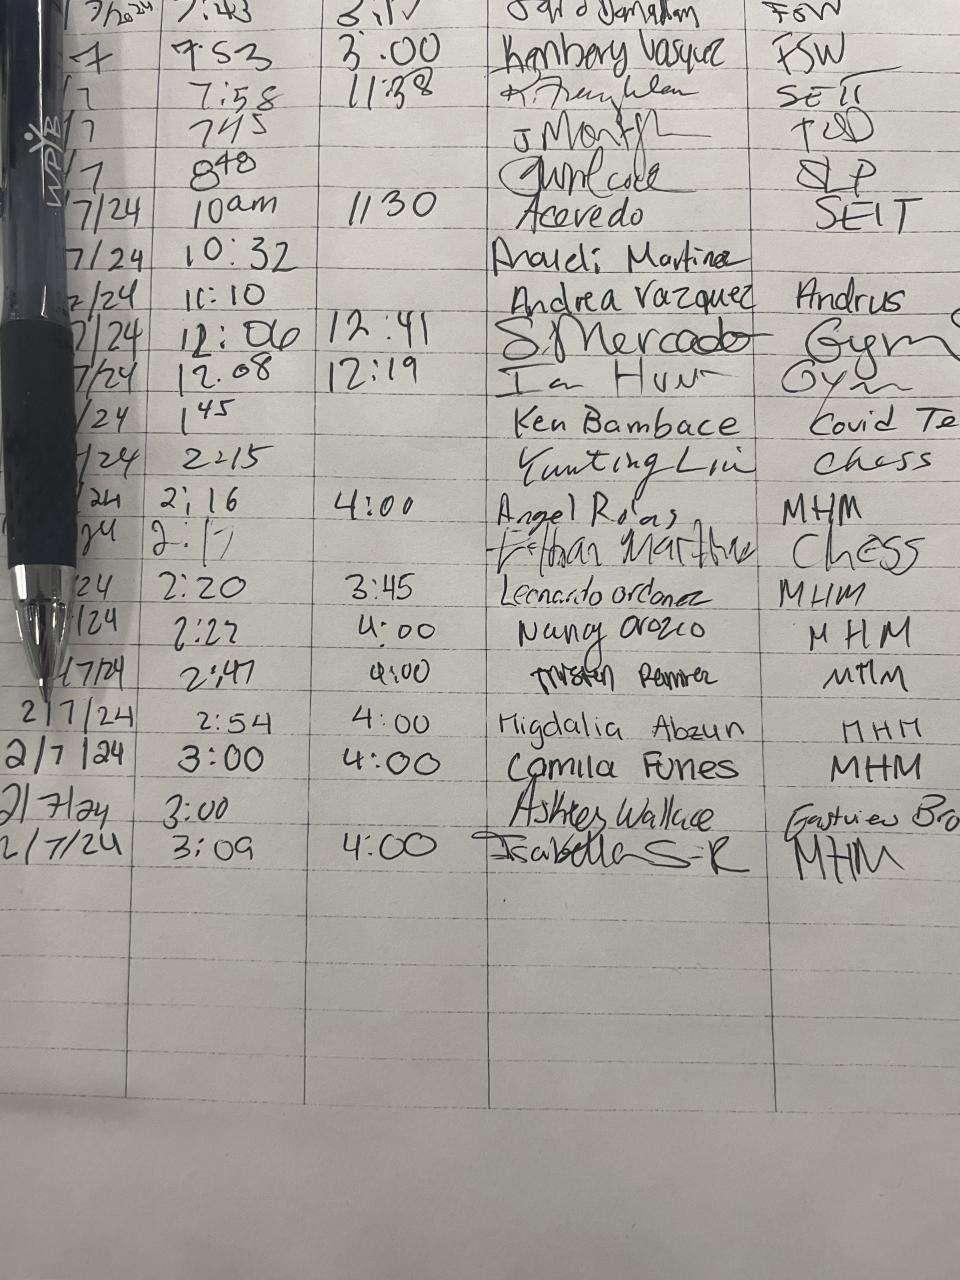 7/2024 7:43 FSW
7 7:53 3:00 Kimberly Vasquez FSW
/7 7:58 11:38 SEIT
/7 745 J
/7 8 48 SLP
7/24 10am 1130 Acevedo SEIT
7/24 10:32 Martinez
7/24 11:10 Andrea Vazquez Andrus
7/24 12:06 12:41 S. Mercado Gym
7/24 12.08 12:19 Ian Hunt Gym
/24 1 45 Ken Bambace Covid Te
/24 2:15 Yunting Liu chess
24 2:16 4:00 Angel Rojas MHM
24 2:17 Ethan Martinez Chess
24 2:20 3:45 Leonardo ordonez MHM
/24 2:22 4:00 Nancy Orozco MHM
/7/24 2:47 4:00 Ramirez MHM
2/7/24 2:54 4:00 Migdalia Abzun MHM
2/7/24 3:00 4:00 Camila Funes MHM
2/7/24 3:00 Wallace Bro
2/7/24 3:09 4:00 Isabella S-R MHM